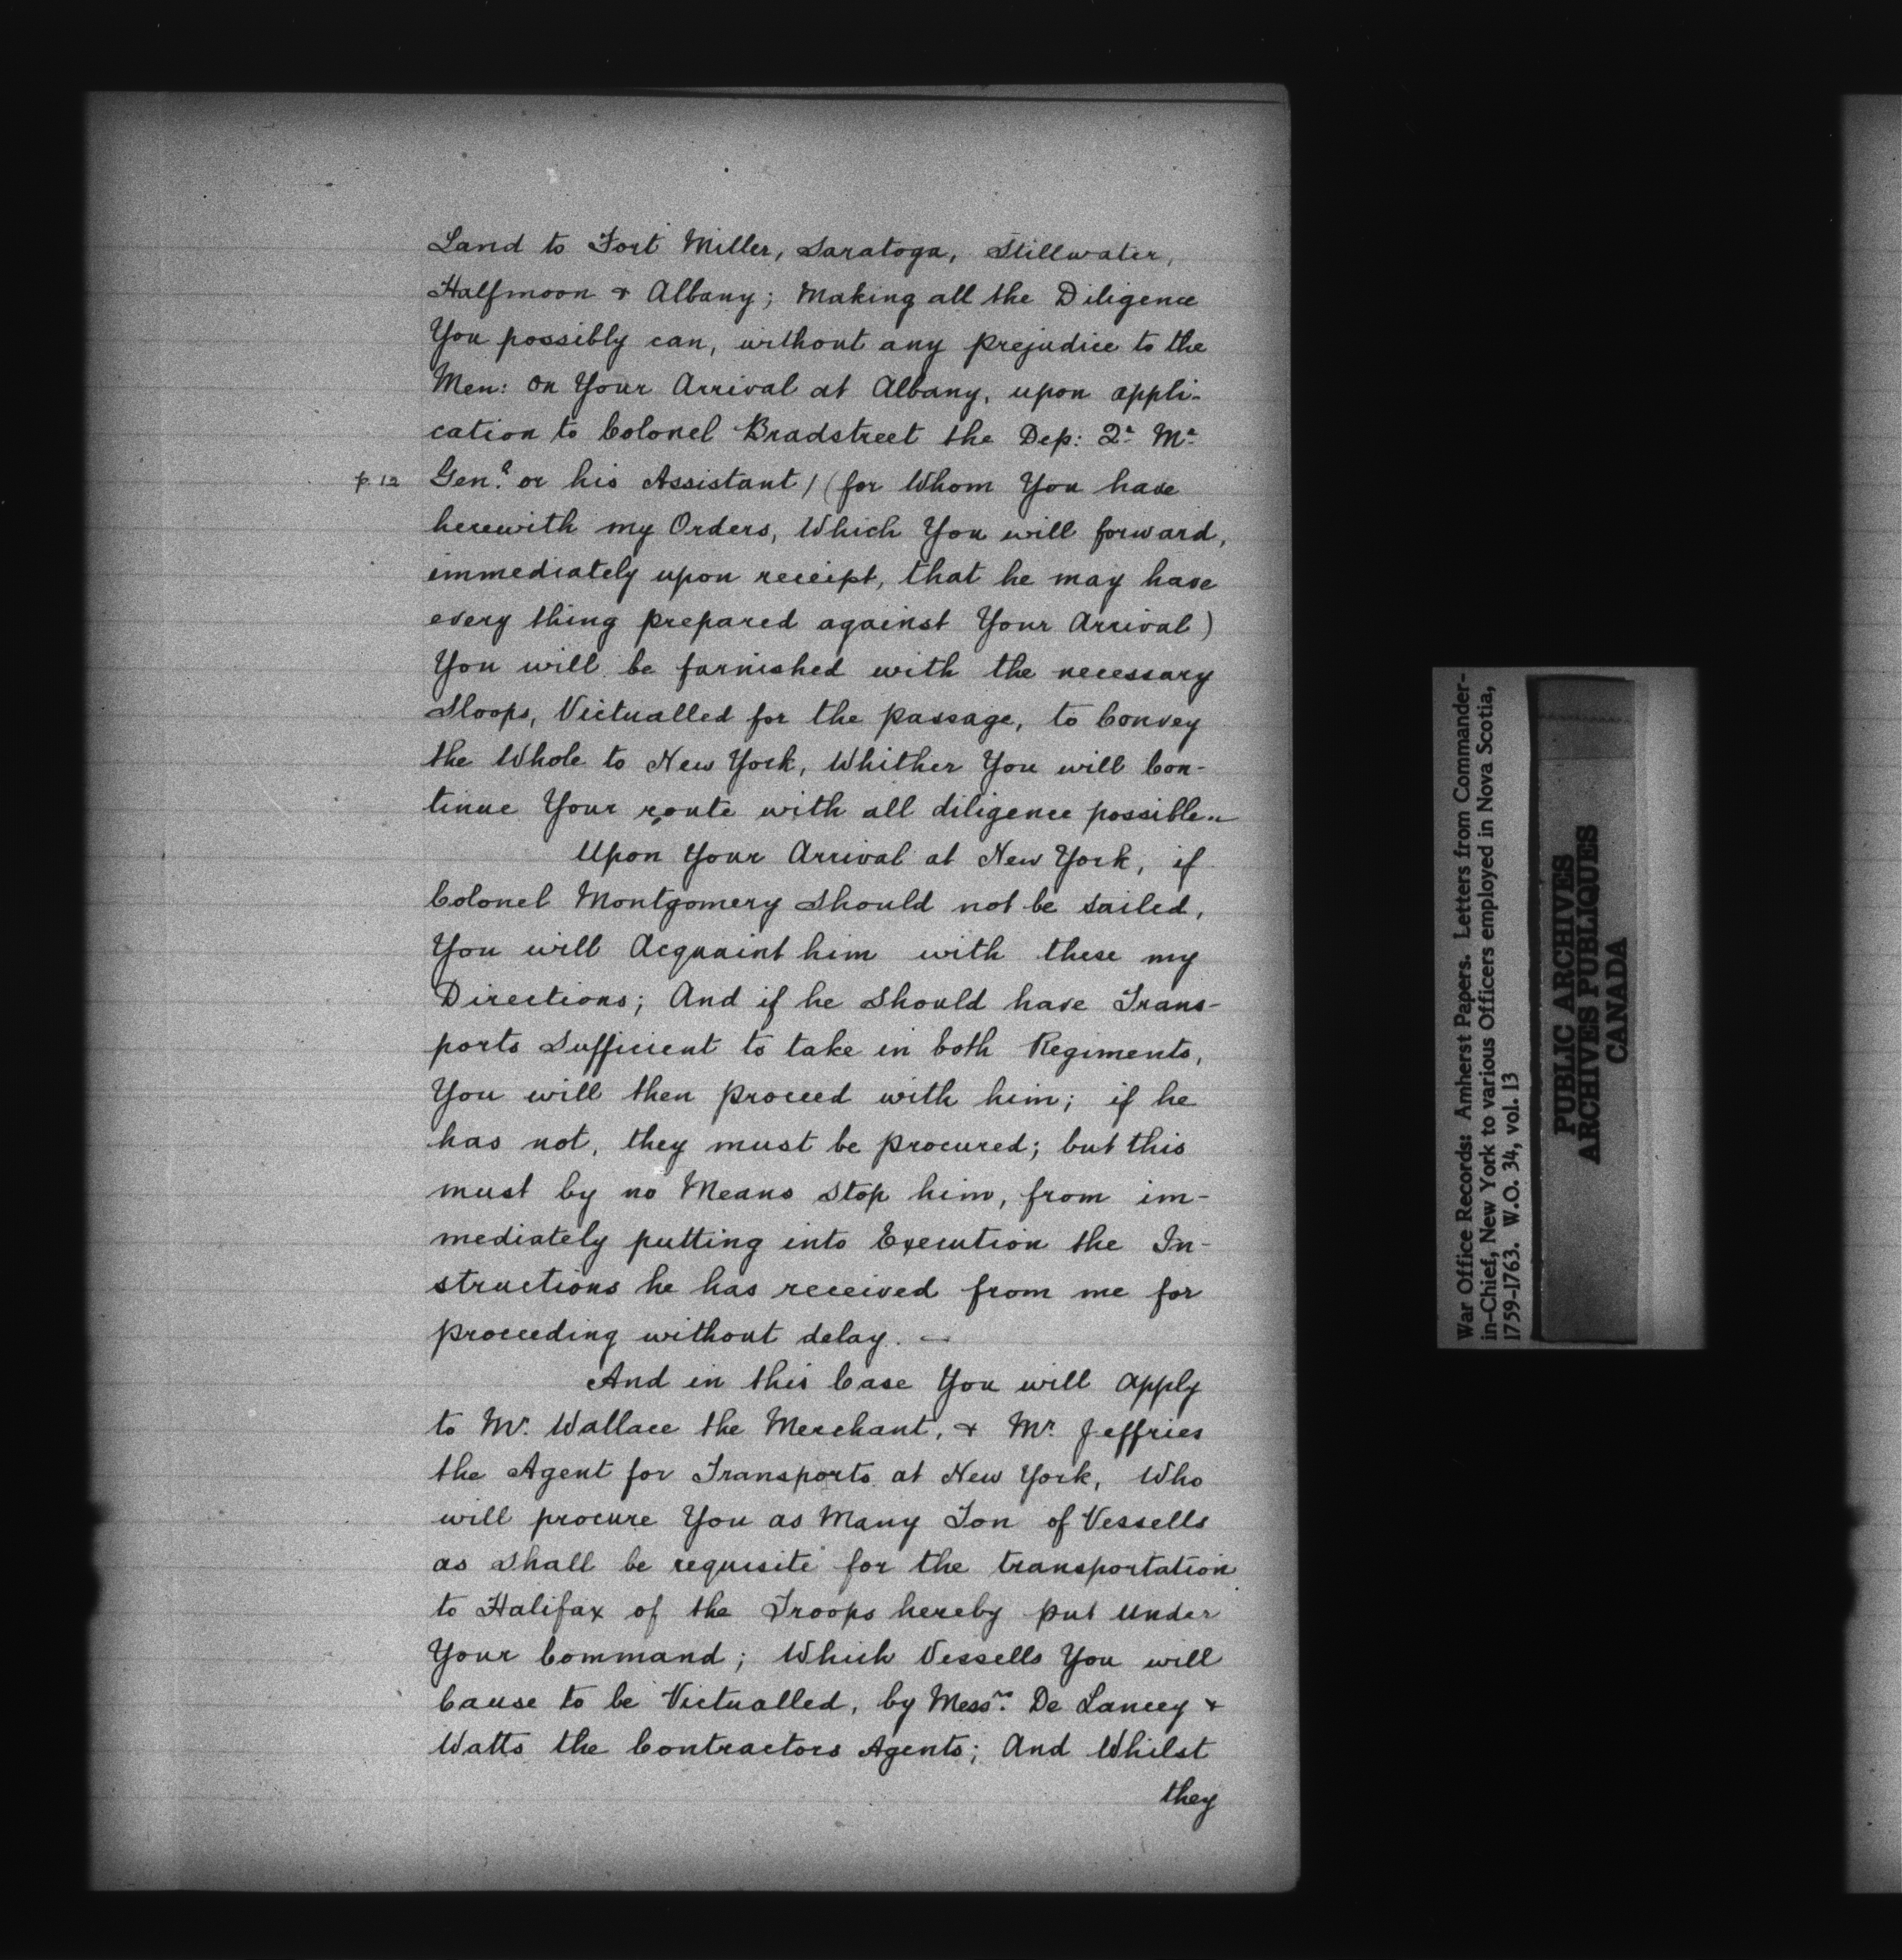 Land to Fort Miller, Saratoga, Stillwater,
Halfmoon & Albany; Making all the Diligence
You possibly can, without any prejudice to the
Men: On Your Arrival at Albany, upon appli-
cation to Colonel Bradstreet the Dep: Qr. Mr.
p. 12 Genl. or his Assistant / (for Whom You have
herewith my Orders, Which You will forward,
immediately upon receipt, that he may have
every thing prepared against Your Arrival)
You will be furnished with the necessary
Sloops, Victualled for the passage, to Convey
the Whole to New York, Whither You will Con-
tinue Your route with all diligence possible.
Upon Your Arrival at New York, if
Colonel Montgomery Should not be Sailed,
You will Acquaint him with these my
Directions; And if he Should have Trans-
ports Sufficient to take in both Regiments,
You will then proceed with him; if he
has not, they must be procured; but this
must by no Means Stop him, from im-
mediately putting into Execution the In-
structions he has received from me for
proceeding without delay. —
And in this Case You will apply
to Mr. Wallace the Merchant, & Mr. Jeffries
the Agent for Transports at New York, Who
will procure You as Many Ton of Vessells
as Shall be requisite for the transportation
to Halifax of the Troops hereby put Under
Your Command; Which Vessells You will
Cause to be Victualled, by Messrs. De Lancey &
Watts the Contractors Agents; And Whilst
they
War Office Records: Amherst Papers. Letters from Commander-
in-Chief, New York to various Officers employed in Nova Scotia,
1759-1763. W.O. 34, vol. 13
PUBLIC ARCHIVES
ARCHIVES PUBLIQUES
CANADA